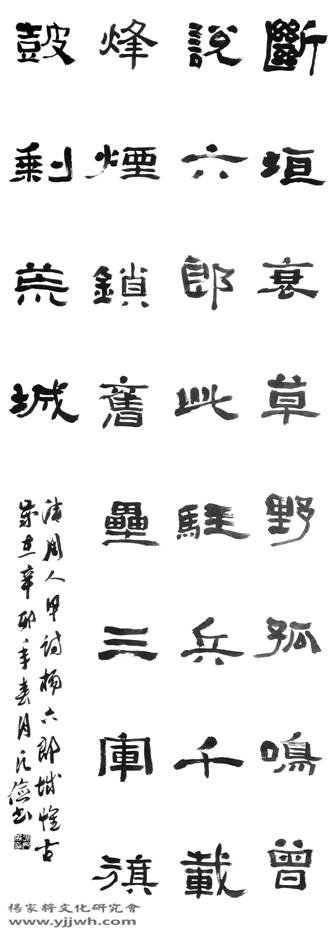 斷垣衰草野狐鳴曾
說六郎此駐兵千載
烽煙鎖舊壘三軍旗
皷剩荒城
清周人甲詩楊六郎城懷古
歲在辛卯年春月書
楊家將文化研究會
www.yjjwh.com